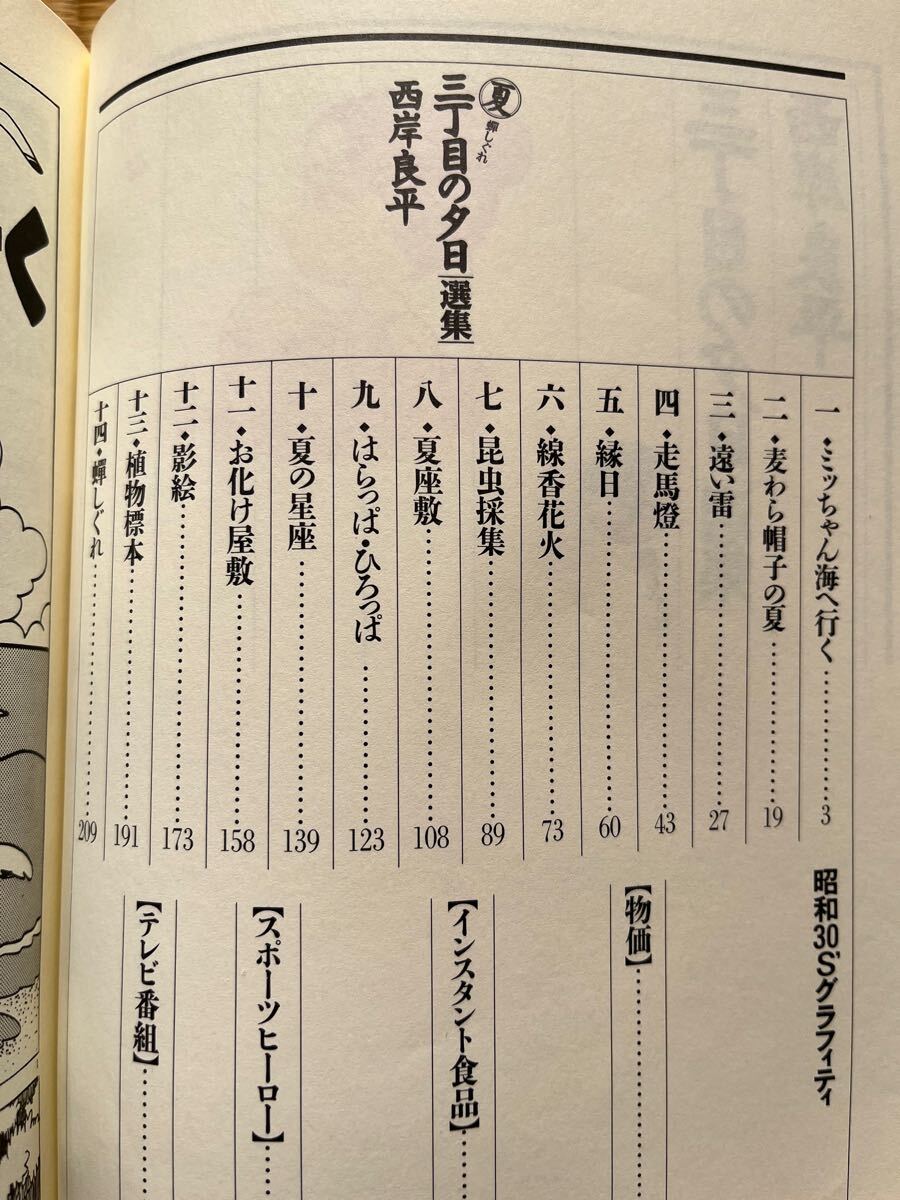 夏
蟬しぐれ
三丁目の夕日 選集
西岸良平
一◆ミッちゃん海へ行く…………3
二◆麦わら帽子の夏…………19
三◆遠い雷…………27
四◆走馬燈…………43
五◆縁日…………60
六◆線香花火…………73
七◆昆虫採集…………89
八◆夏座敷…………108
九◆はらっぱ・ひろっぱ…………123
十◆夏の星座…………139
十一◆お化け屋敷…………158
十二◆影絵…………173
十三◆植物標本…………191
十四◆蟬しぐれ…………209
昭和30'Sグラフィティ
【物価】…………
【インスタント食品】…………
【スポーツヒーロー】…………
【テレビ番組】…………